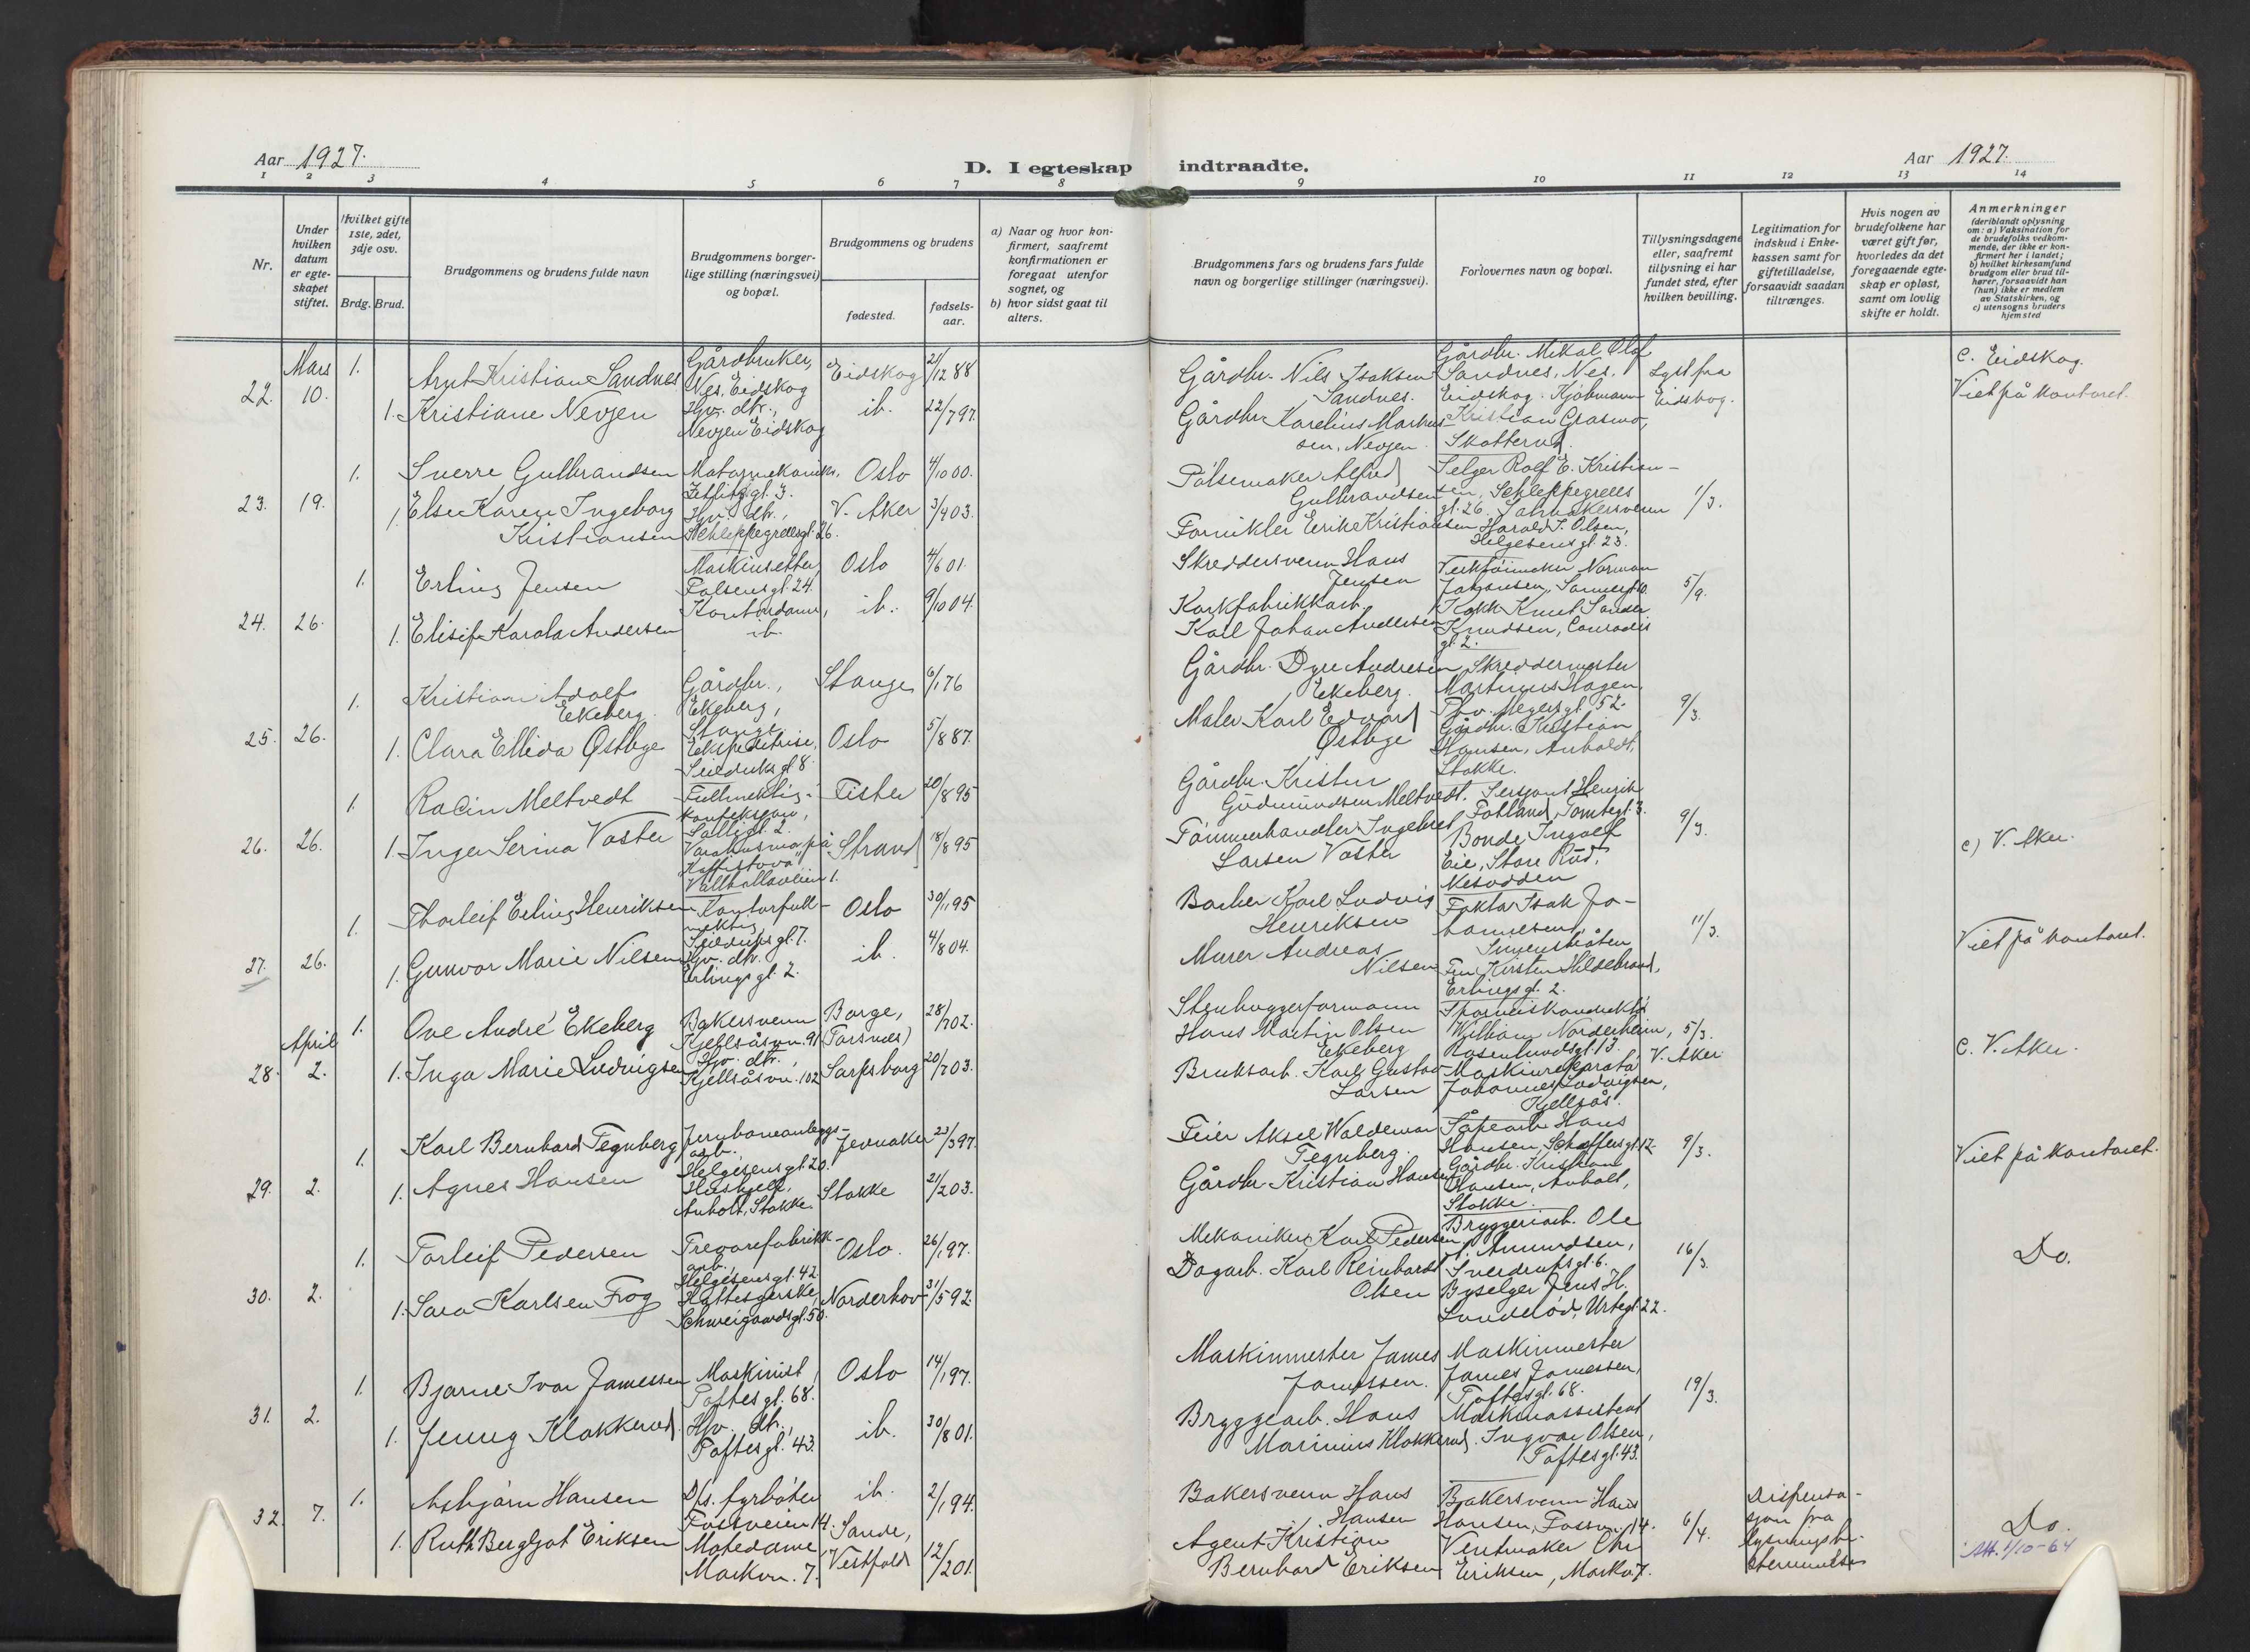 Aar 1927.
D. I egteskap indtraadte.
Aar 1927.
1 2 3 4 5 6 7 8 9 10 11 12 13 14
Nr.
Under hvilken datum er egteskapet stiftet.
Hvilket gifte 1ste, 2det, 3dje osv.
Brdg. Brud.
Brudgommens og brudens fulde navn
Brudgommens borgerlige stilling (næringsvei) og bopæl.
Brudgommens og brudens
fødested.
fødselsaar.
a) Naar og hvor konfirmert, saafremt konfirmationen er foregaat utenfor sognet, og
b) hvor sidst gaat til alters.
Brudgommens fars og brudens fars fulde navn og borgerlige stillinger (næringsvei).
Forlovernes navn og bopæl.
Tillysningsdagene eller, saafremt tillysning ei har fundet sted, efter hvilken bevilling.
Legitimation for indskud i Enkekassen samt for giftetilladelse, forsaavidt saadan tiltrænges.
Hvis nogen av brudefolkene har været gift før, hvorledes da det foregaaende egteskap er opløst, samt om lovlig skifte er holdt.
Anmerkninger
(deriblandt oplysning om: a) Vaksination for de brudefolks vedkommende, der ikke er konfirmert her i landet; b) hvilket kirkesamfund brudgom eller brud tilhører, forsaavidt han (hun) ikke er medlem av Statskirken, og c) utensogns bruders hjemsted
22. Mars 10.
1. Arnt Kristian Sandnes
Gårdbruker, Nes, Eidskog
Eidskog 21/12 88
1. Kristiane Nevjen
Hjv. dtr., Nevjen Eidskog
ib. 22/7 97.
Gårdbr. Nils Isaksen Sandnes.
Gårdbr. Karelius Markussen, Nevjen.
Gårdbr. Mikal Olaf Sandnes, Nes, Eidskog. Kjøbmann Kristian Grasmo, Skotterud.
Lyst fra Eidskog.
c. Eidskog.
Viet på kontoret.
23. 19.
1. Sverre Gulbrandsen
Oslo 4/10 00.
1. Else Karen Ingeborg Kristiansen
Hjv. dtr., Schleppegrellsgt. 26.
V. Aker 3/4 03.
Pølsemaker Alfred Gulbrandsen
Fornikler Erik Kristiansen
Selger Rolf E. Kristiansen, Schleppegrells gt. 26.
Harald J. Olsen, Helgesens gt. 23.
1/3.
24. 26.
1. Erling Jensen
Maskinsetter
Oslo 4/6 01.
1. Elisif Karola Andersen
Kontordame, ib.
ib. 9/10 04.
Skreddersvenn Hans Jensen
Korkfabrikkarb. Karl Johan Andersen
Verktøimaker Norman Johansen, Sannergt. 10.
Kokk Knut Sander Knudsen, Conradis gt. 2.
5/9.
25. 26.
1. Kristian Adolf Ekeberg.
Gårdbr., Ekeberg, Stange
Stange 6/1 76
1. Clara Ellida Østbye
Ekspeditrise, Seilduksgt. 8.
Oslo 5/8 87.
Gårdbr. Dyre Andresen Ekeberg.
Maler Karl Edvard Østbye
Skreddermester Martinius Hagen, Thv. Meyersgt. 52.
Gårdbr. Kristian Hansen, Anholdt, Stokke.
9/3.
26. 26.
1. Racin Meltvedt
Fullmektig
20/8 95
1. Inga Serina Vaster
Valhallaveien 1.
Strand 18/8 95
Gårdbr. Kristen Gudmundsen Meltvedt.
Tømmerhandler Ingebret Larsen Vaster
Sersjant Henrik Fotland, Tomtegt. 3.
Bonde Ingolf Eie, Store Rud, Nesodden
9/3.
c) V. Aker.
27. 26.
1. Thorleif Erling Henriksen
Kontorfullmektig, Seilduksgt. 7.
Oslo 30/1 95
1. Gunvor Marie Nilsen
Hjv. dtr. Erlingsgt. 2.
ib. 4/8 04.
Barber Karl Ludvig Henriksen
Murer Andreas Nilsen
Faktor Isak Johannesen,
Fru Kirsten Hildebrand, Erlingsgt. 2.
11/3.
Viet på kontoret.
28. April 2.
1. Ove André Ekeberg
Bakersvenn Kjellsåsvn. 91
Borge, 28/7 02.
1. Inga Marie Ludvigsen
Hjv. dtr., Kjellsåsvn. 102
Sarpsborg 20/7 03.
Stenhuggerformann Hans Martin Olsen Ekeberg
Bruksarb. Karl Gustav Larsen
Sporveiskonduktør William Norderheim, Rosenlundsgt. 13.
Maskinreparatør Johannes Ludvigsen, Kjellsås.
5/3. V. Aker.
c. V. Aker.
29. 2.
1. Karl Bernhard Tegnberg
Jernbaneanleggsarb. Helgesensgt. 20.
Jevnaker 23/3 97.
1. Agnes Hansen
Hushjelp, Anholt, Stokke.
Stokke 21/2 03.
Feier Aksel Waldemar Tegnberg.
Gårdbr. Kristian Hansen
Såpearb. Hans Hansen,
Gårdbr. Kristian Hansen, Anholt, Stokke.
9/3.
Viet på kontoret.
30. 2.
1. Torleif Pedersen
Trevarefabrikkarb., Helgesensgt. 42
Oslo. 26/1 97.
1. Sara Karlsen Frog
Hattesyerske, Schweigaardsgt. 50.
Norderhov 31/5 92.
Mekaniker Karl Pedersen
Dagarb. Karl Reinhardt Olsen
Bryggeriarb. Ole Amundsen, Sverdrupsgt. 6.
Byselger Jens H. Urtegt. 22.
16/3.
Do.
31. 2.
1. Bjarne Ivar Jamessen
Maskinist, Toftesgt. 68.
Oslo 14/1 97.
1. Jenny Klokkerud.
Hjv. dtr., Toftesgt. 43.
ib. 30/8 01.
Maskinmester James Jamessen.
Bryggearb. Hans Marinius Klokkerud.
Maskinmester James Jamessen, Toftesgt. 68.
Maskinassistent Ingvar Olsen, Toftesgt. 43.
19/3.
32. 7.
1. Asbjørn Hansen
D/s. fyrbøter Fossveien 14.
ib. 2/1 94.
1. Ruth Bergljot Eriksen
Motedame, Markvn. 7.
Sande, Vestfold 12/2 01.
Bakersvenn Hans Hansen
Agent Kristian Bernhard Eriksen
Bakersvenn Hans Hansen, Fossvn. 14.
Chr. Eriksen, Markv. 7.
6/4.
Dispensasjon fra lysningsbestemmelse
Do.
Att. 1/10-64